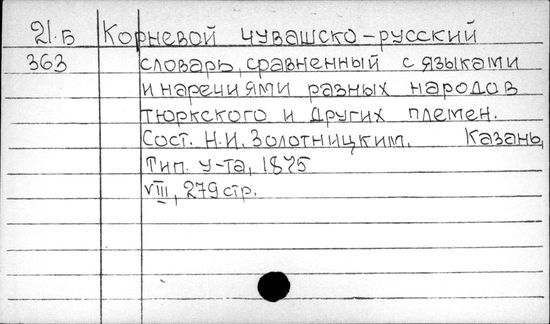 21.Б Корневой чувашско-русский
363 словарь, сравненный с языками
и наречиями разных народов
тюркского и других племен.
Сост. Н.И. Золотницким. Казань,
Тип. у-та, 1875
VIII, 279 стр.